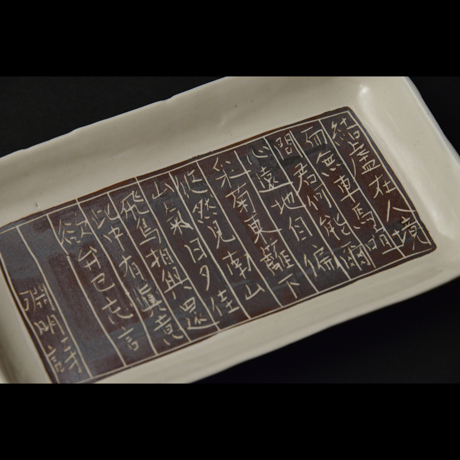 結廬在人境
而無車馬喧
問君何能爾
心遠地自偏
采菊東籬下
悠然見南山
山氣日夕佳
飛鳥相與還
此中有眞意
欲弁已忘言
淵明詩